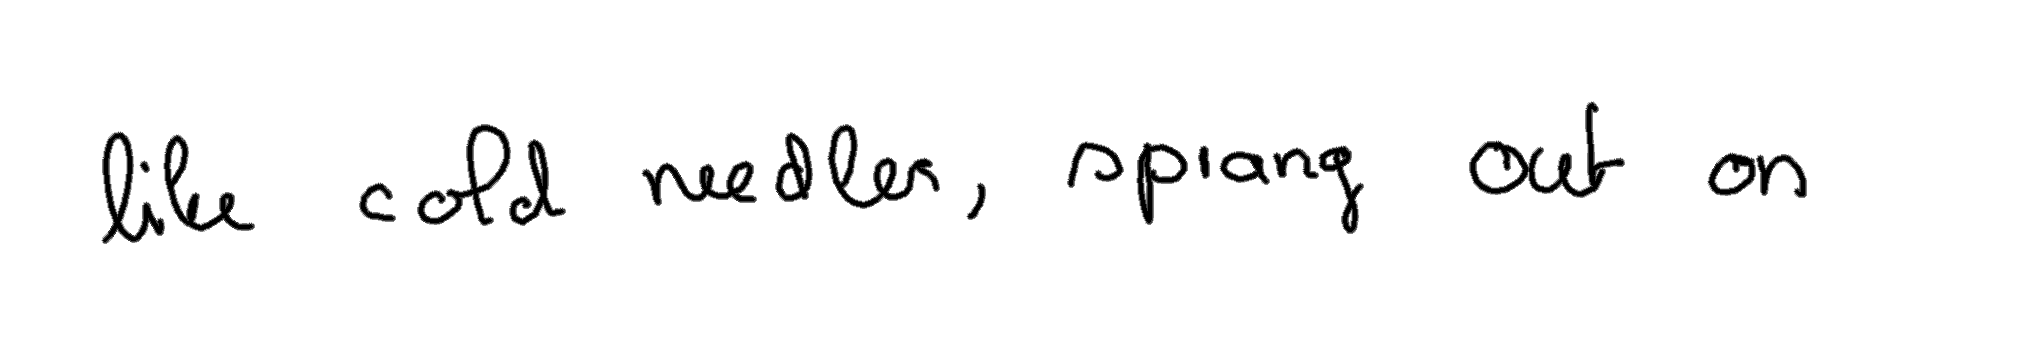 like cold needles, sprang out on